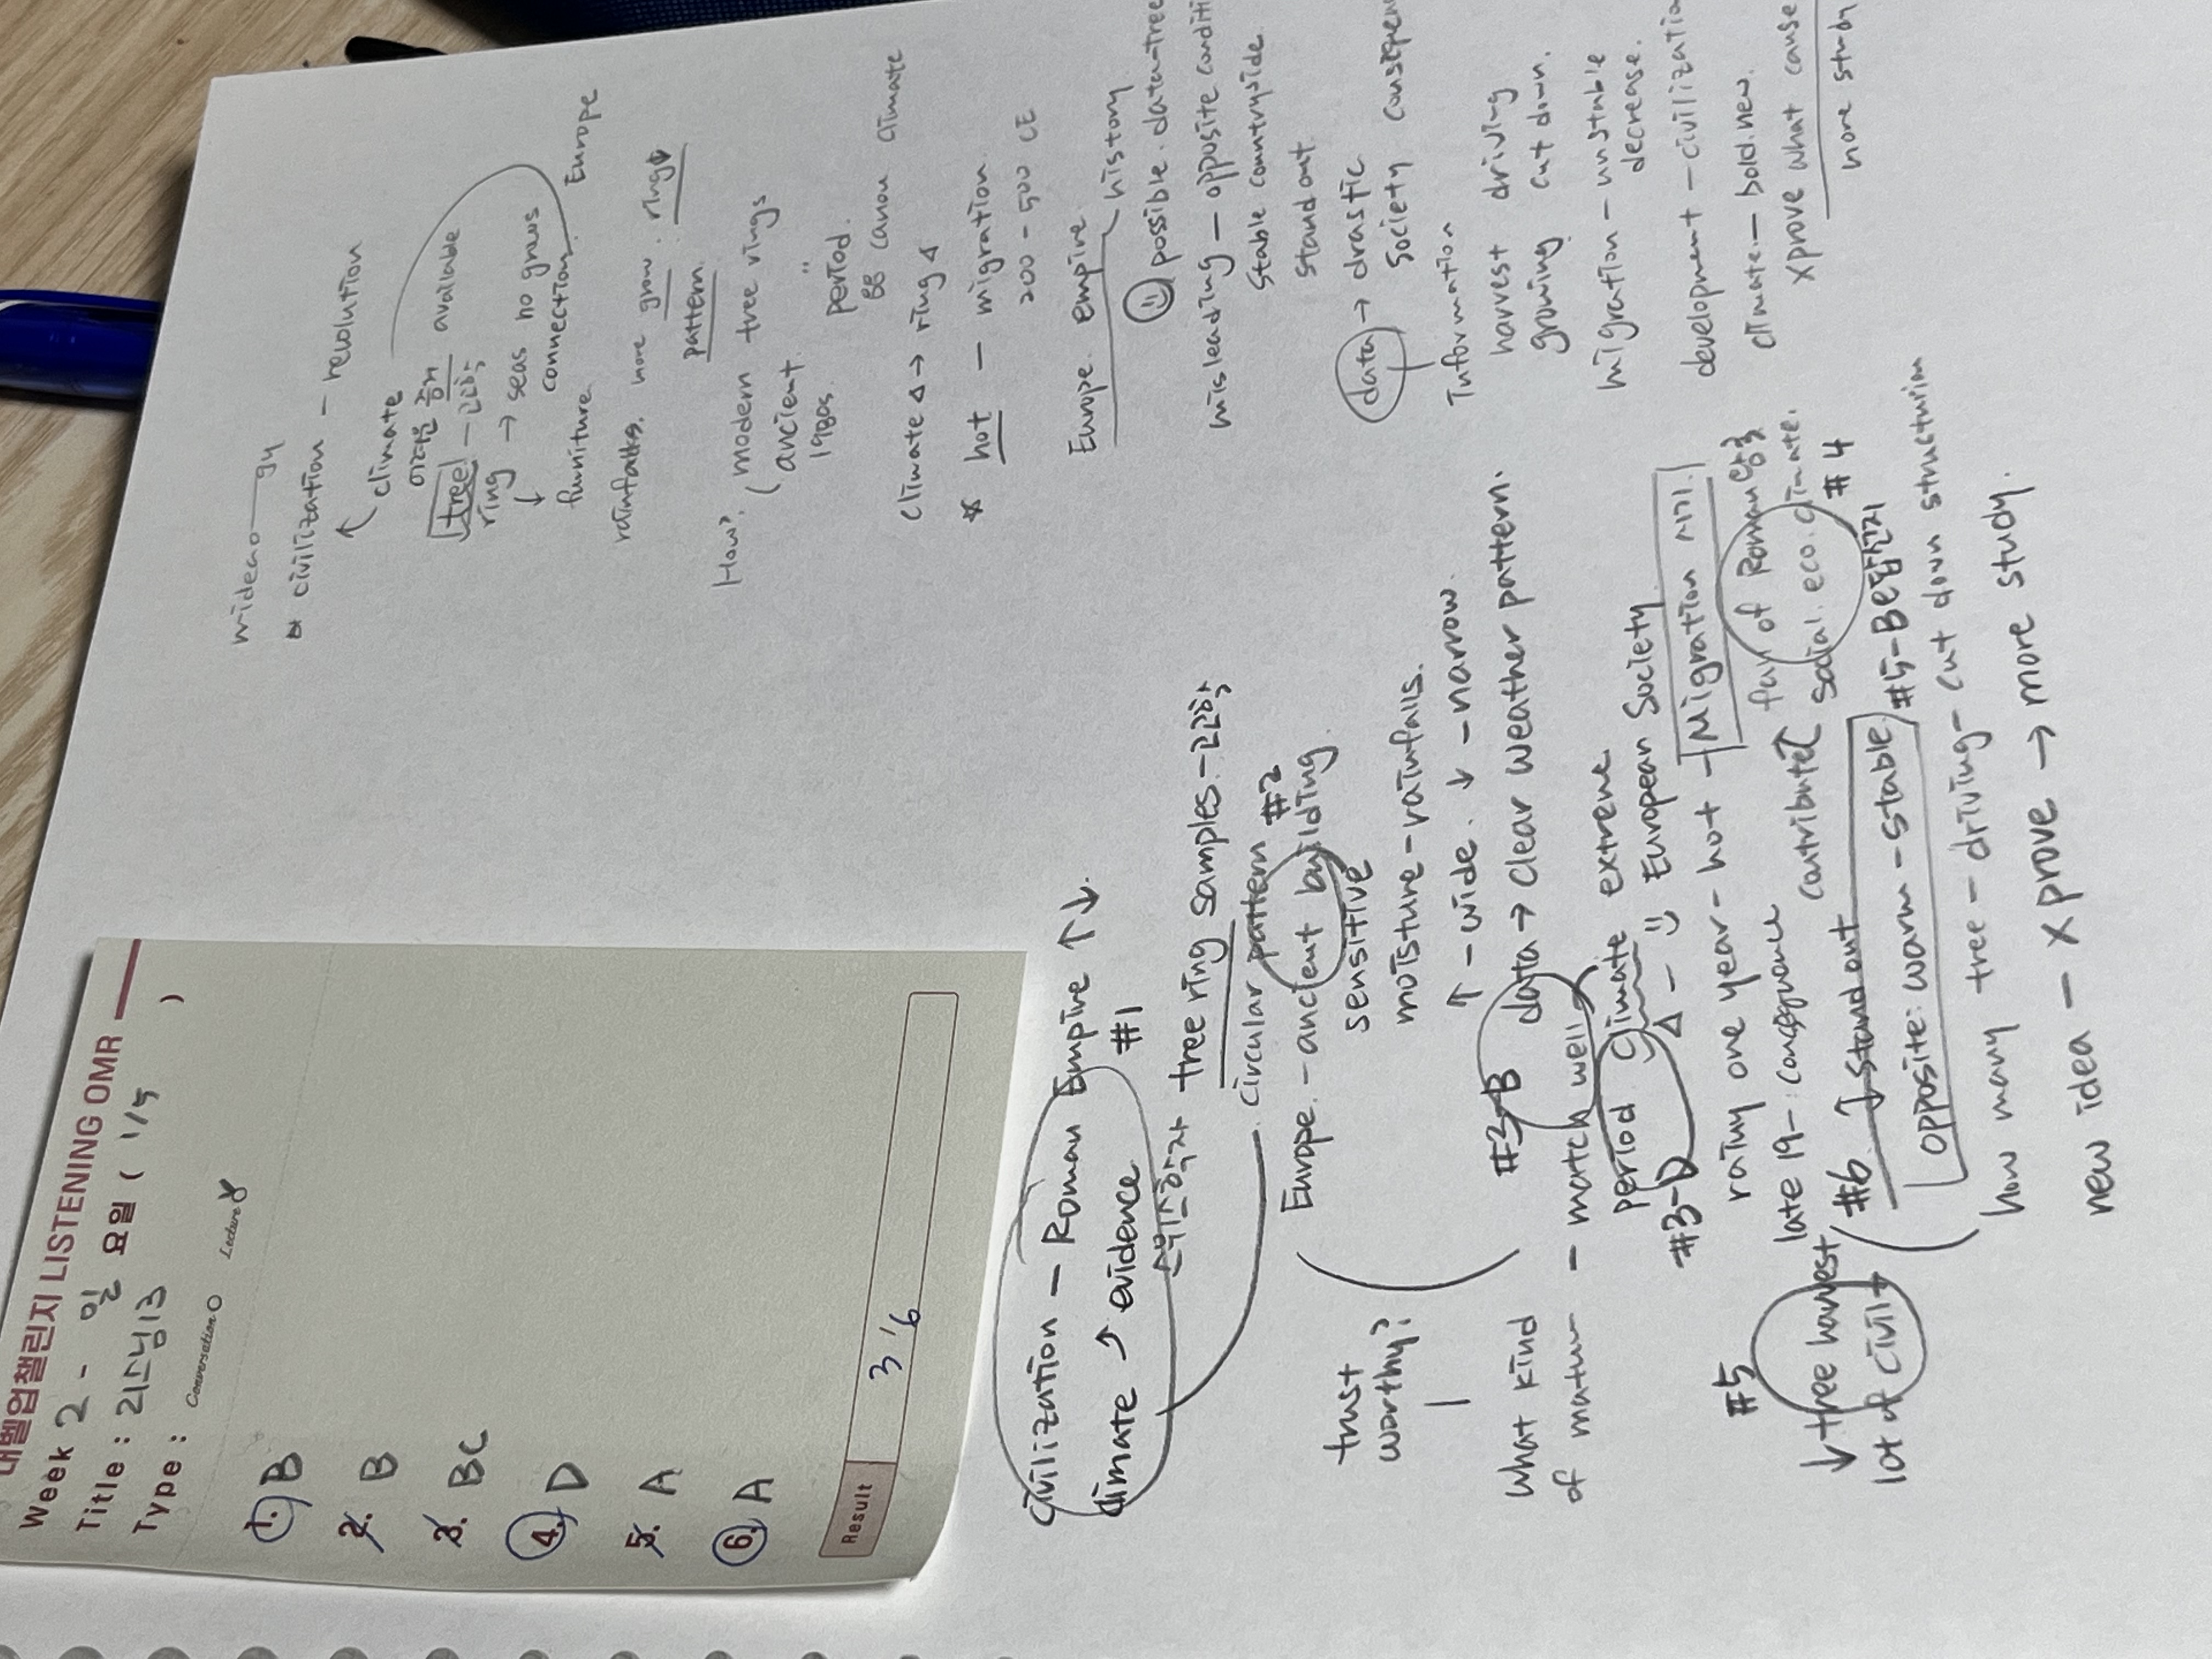 레벨업챌린지 LISTENING OMR
Week 2 - 일 요일 ( 1/5 )
Title : 리스닝13
Type : Conversation Lecture
1. B
2. B
3. BC
4. D
5. A
6. A
Result 3 / 6
Civilization - Roman Empire ↑↓
#1
climate ↗ evidence
스위스학자 tree ring samples - 고고학
circular pattern #2
Europe. - ancient building
sensitive
trust
worthy?
moisture - rainfalls.
↑ - wide. ↓ - narrow.
#3-B data → clear weather pattern.
What kind
of - match well
period climate extreme
#3-D Δ - European Society
rainy one year - hot - Migration 시기
late 19- : contributed fall of Roman 영향
social. eco. climate.
#4
#5
↓ tree harvest #6 stand out
lot of civil + opposite: warm - stable #5-B
how many tree - driving - cut down
new idea - x prove → more study.
civilization - revolution
↑ climate
어려운 증거 available
tree - 고고학
ring → seas no grows
↓ connection
furniture Europe
rainfalls. more grow. ring↓
pattern.
How? modern tree rings
ancient. "
1980s. period.
climate Δ → ring Δ climate
* hot - migration.
200 - 500 CE
Europe. empire. history
possible. data-tree
misleading - opposite conditi
stable countryside.
stand out
data → drastic
society conseque
Information
harvest driving
growing cut down.
migration - unstable
decrease.
development - civilizatio
climate. - bold. new.
xprove what cause
more study